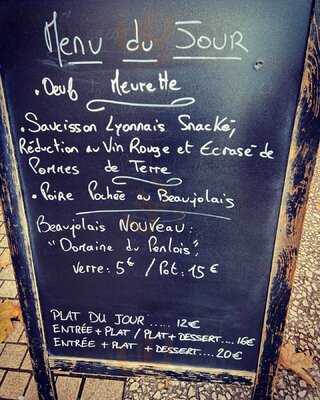 Menu du JOUR
• Oeuf Meurette
• Saucisson Lyonnais Snacké,
Réduction au Vin Rouge et Ecrasé de
Pommes de Terre
• Poire Pochée au Beaujolais
Beaujolais NOUVEAU :
"Domaine du Penlois",
Verre : 5€ / Pot : 15€
PLAT DU JOUR ...... 12€
ENTRÉE + PLAT / PLAT + DESSERT.... 16€
ENTRÉE + PLAT + DESSERT.... 20€